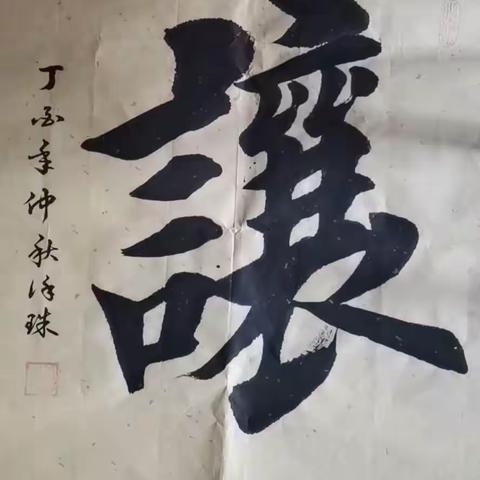 讓
丁酉年仲秋珠